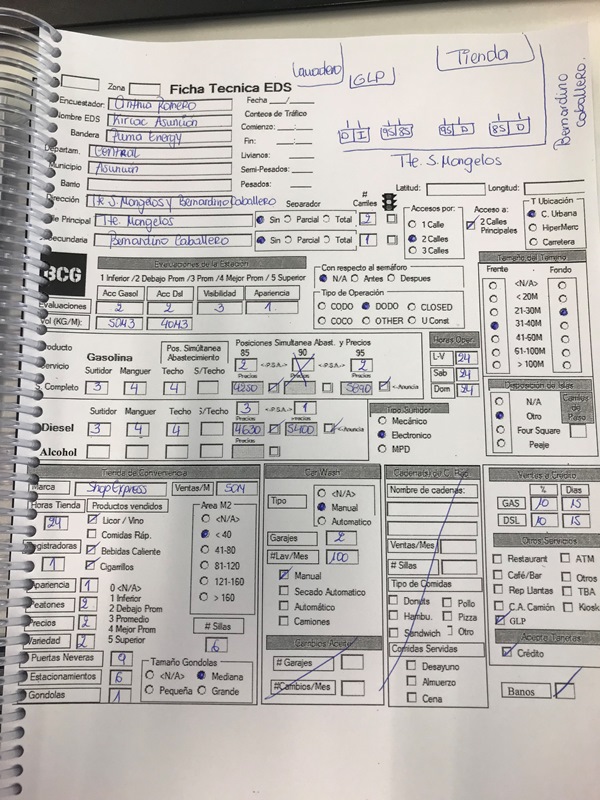 Lavadero
GLP
Tienda
Bernardino Caballero.
D I
95 85
95 D
85 D
Tte. S. Mongelos
Zona
Ficha Tecnica EDS
Encuestador: Cinthia Romero
Nombre EDS Kirvac Asunción
Bandera Puma Energy
Departam. Central
Municipio Asuncion
Barrio
Dirección Tte S. Mongelos y Bernardino Caballero
Fecha ___/___/___
Conteos de Tráfico
Comienzo: __:__
Fin: __:__
Livianos:
Semi-Pesados:
Pesados:
Separador
# Carriles
Calle Principal Tte. Mongelos Sin Parcial Total 2
Secundaria Bernardino Caballero Sin Parcial Total 1
Latitud: Longitud:
Accesos por:
1 Calle
2 Calles
3 Calles
Acceso a:
2 Calles Principales
T Ubicación
C. Urbana
HiperMerc
Carretera
BCG
Evaluaciones de la Estacion
1 Inferior /2 Debajo Prom /3 Prom /4 Mejor Prom / 5 Superior
Acc Gasol Acc Dsl Visibilidad Apariencia
Evaluaciones 2 2 3 1
Vol (KG/M): 50M3 40M3
Con respecto al semáforo
N/A Antes Despues
Tipo de Operación
CODO DODO CLOSED
COCO OTHER U Const
Tamaño del Terreno
Frente Fondo
<N/A>
< 20M
21-30M
31-40M
41-60M
61-100M
> 100M
Producto
Servicio
Gasolina
Pos. Simúltanea Abastecimiento
Posiciones Simultanea Abast. y Precios
85 90 95
2 <-P.S.A.-> 2
Surtidor Manguer Techo S/Techo Precios Precios Precios
S. Completo 3 4 4 4250 5690 <-Anuncia
Surtidor Manguer Techo S/Techo 3 <-P.S.A-> 1
Precios Precios
Diesel 3 4 4 4630 5400 <-Anuncia
Alcohol
Horas Oper.
L-V 24
Sab 24
Dom 24
Tipo Surtidor
Mecánico
Electronico
MPD
Disposición de Islas
N/A
Otro
Four Square
Peaje
Carriles de Paso
Tienda de Conveniencia
Marca Shop Express Ventas/M 50M
Horas Tienda 24
Productos vendidos
Licor / Vino
Comidas Ráp.
Bebidas Caliente
Cigarrillos
Registradoras 1
Area M2
<N/A>
< 40
41-80
81-120
121-160
> 160
Apariencia 1
Peatones 2
Precios 2
Variedad 2
0 <N/A>
1 Inferior
2 Debajo Prom
3 Promedio
4 Mejor Prom
5 Superior
# Sillas
6
Puertas Neveras 9
Estacionamientos 6
Gondolas 1
Tamaño Gondolas
<N/A> Mediana
Pequeña Grande
CarWash
Tipo
<N/A>
Manual
Automatico
Garajes 2
#Lav/Mes 100
Manual
Secado Automatico
Automático
Camiones
Cambios Aceite
# Garajes
#Cambios/Mes
Cadena(s) de C. Rap
Nombre de cadenas:
Ventas/Mes
# Sillas
Tipo de Comidas
Donuts Pollo
Hambu. Pizza
Sandwich Otro
Comidas Servidas
Desayuno
Almuerzo
Cena
Ventas a Crédito
% Dias
GAS 10 15
DSL 10 15
Otros Servicios
Restaurant ATM
Café/Bar Otros
Rep Llantas TBA
C.A. Camión Kiosk
GLP
Acepta Tarjetas
Crédito
Banos